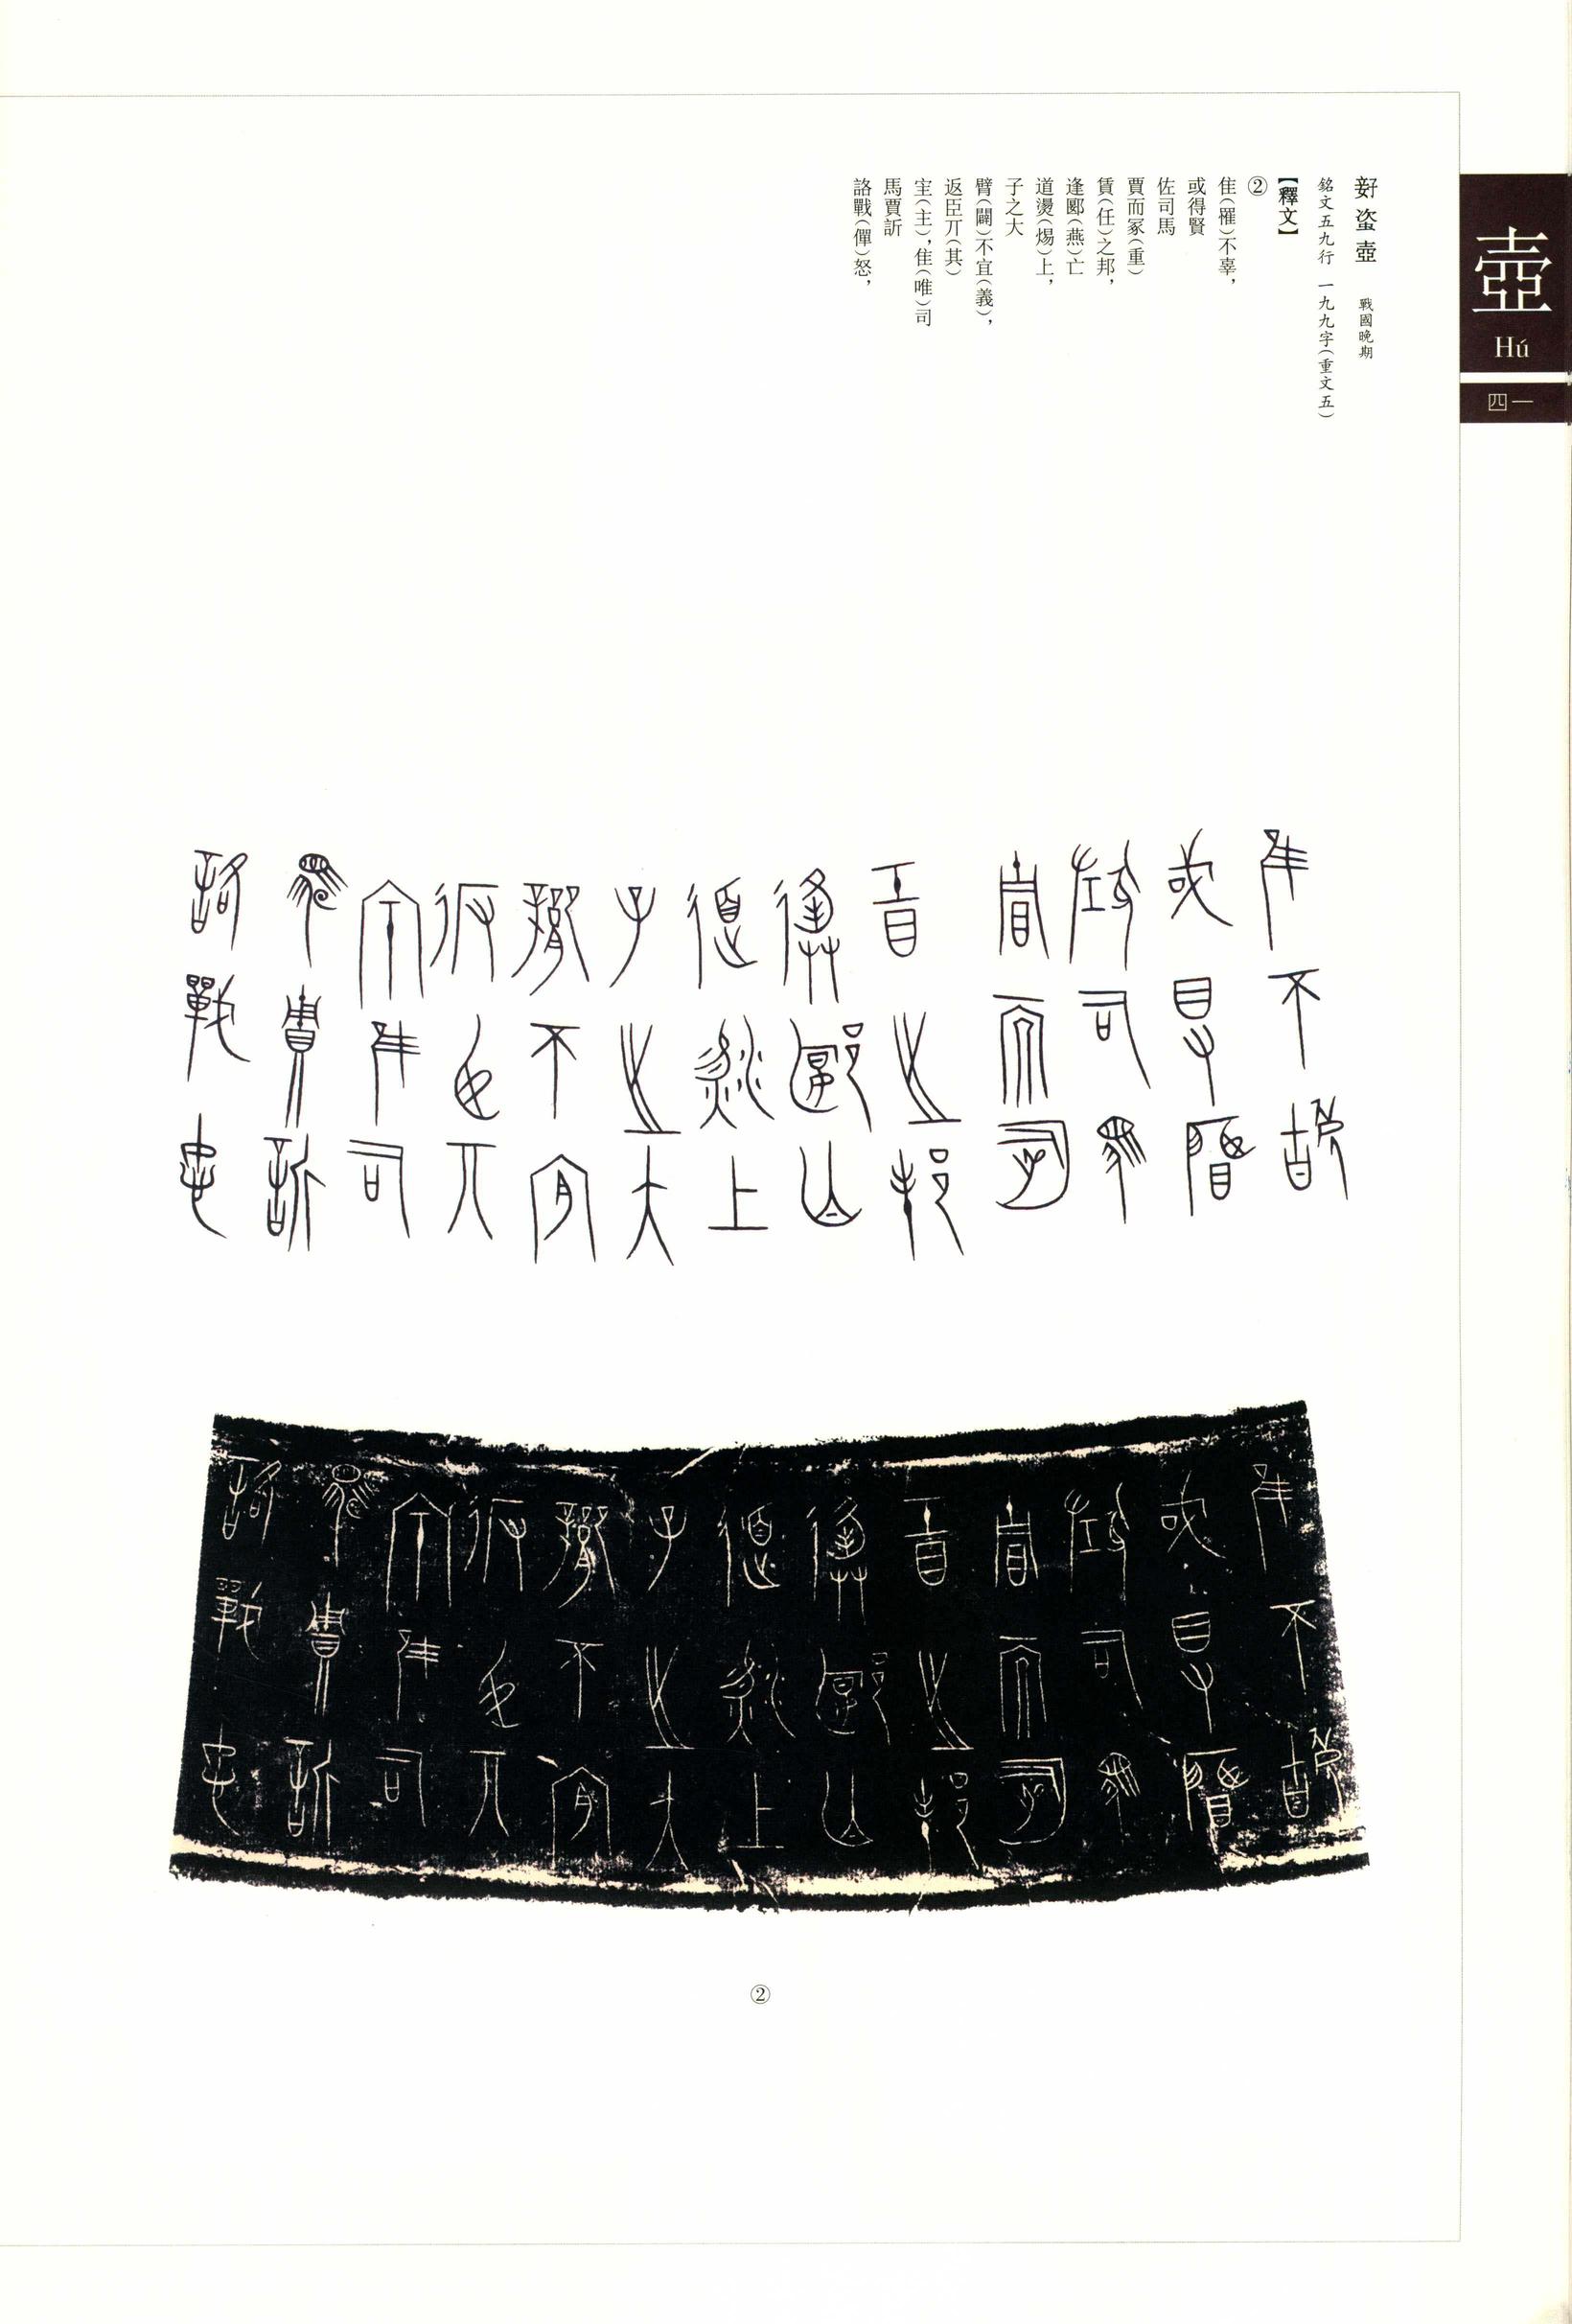 壺
Hú
四一
𡚬盗壺 戰國晚期
銘文五九行 一九九字(重文五)
【釋文】
②
隹(罹)不辜,
或得賢
佐司馬
賈而冢(重)
賃(任)之邦,
逢郾(燕)亡
道燙(煬)上,
子之大
臂(闢)不宜(義),
返臣丌(其)
宔(主),隹(唯)司
馬賈訢
詻戰(僤)怒,
②